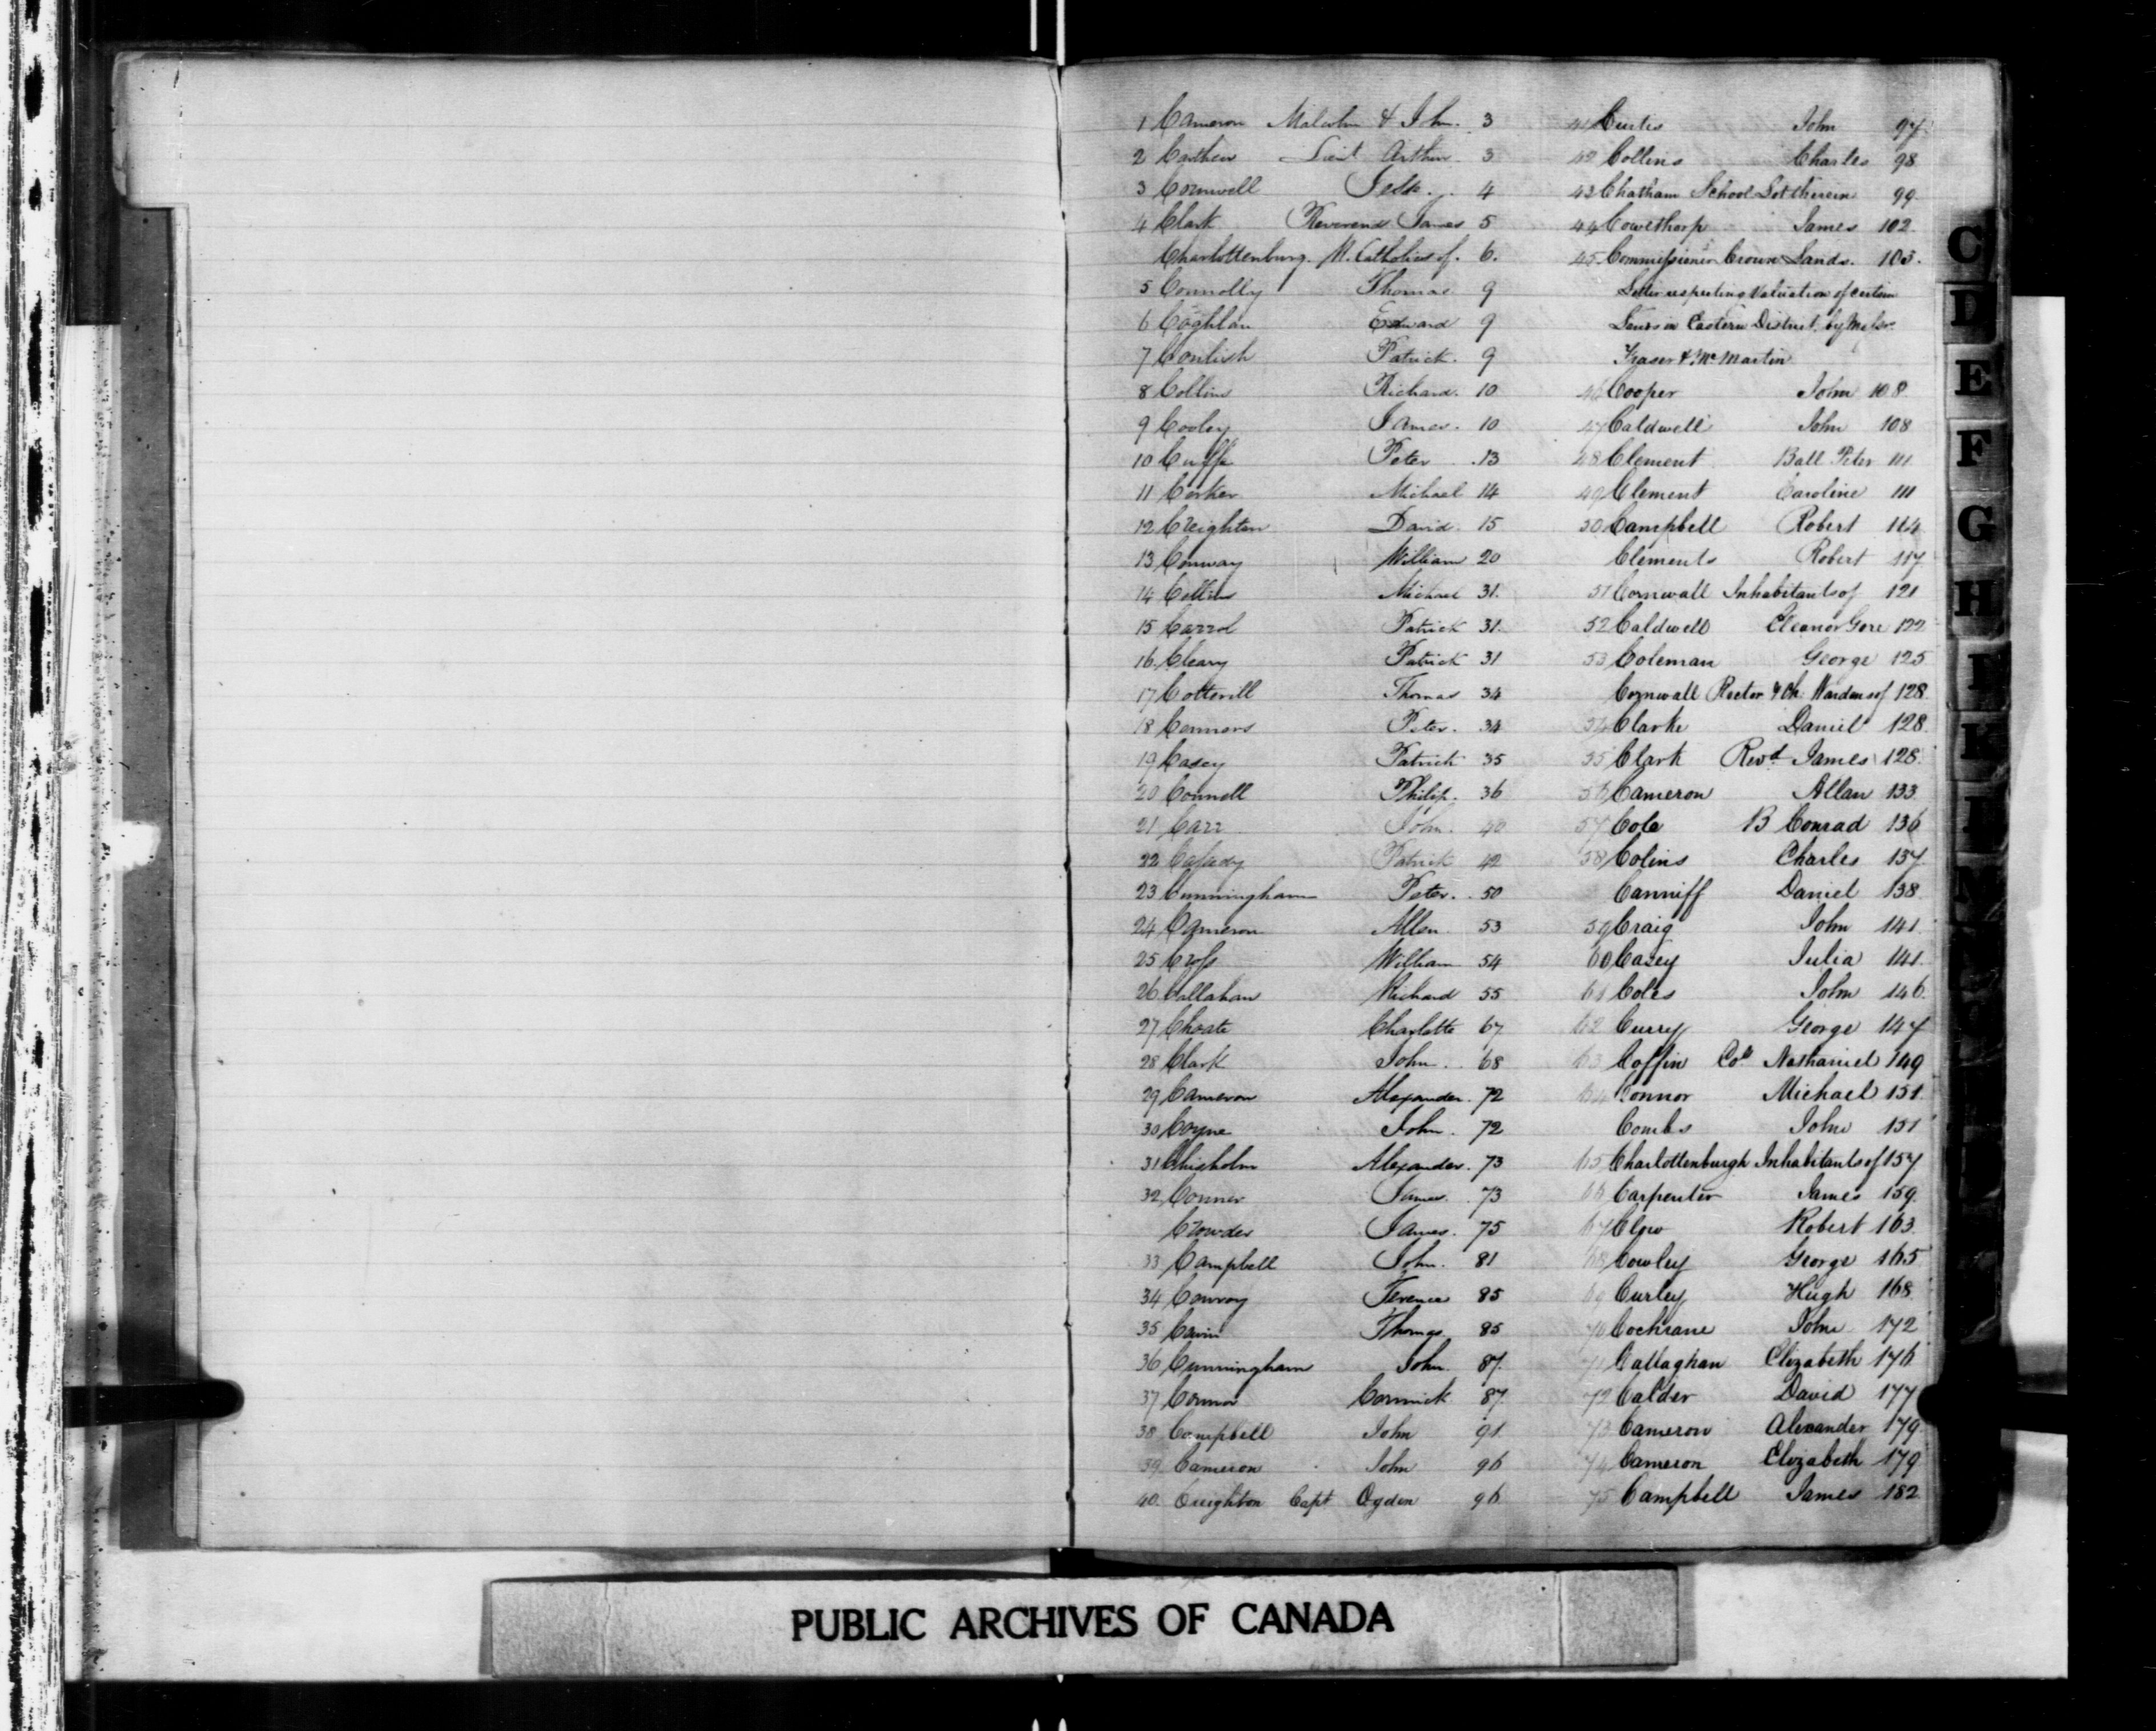 1 Cameron Malcolm & John. 3
2 Carthew Lieut Arthur 3
3 Cornwell 4
4 Clark Reverend James 5
Charlottenburg. Catholics of. 6.
5 Connolly Thomas 9
6 Coghlan Edward 9
7 Patrick. 9
8 Collins Richard. 10
9 Cooley James. 10
10 Cuffe Peter 13
11 Corker Michael 14
12 Creighton David. 15
13 Conway William 20
14 Collins Michael 31.
15 Carrol Patrick 31.
16 Cleary Patrick 31
17 Cotterill Thomas 34
18 Connors Peter. 34
19 Casey Patrick 35
20 Connell Philip. 36
21 Carr John. 40
22 Casady Patrick 42
23 Cunningham Peter. 50
24 Cameron Allen 53
25 Cross William 54
26 Callahan Richard 55
27 Choate Charlotte 67
28 Clark John. 68
29 Cameron Alexander. 72
30 Coyne John. 72
31 Chisholm Alexander. 73
32 Conner James. 73
Crowder James. 75
33 Campbell John. 81
34 Conroy Terence 85
35 Thomas 85
36 Cunningham John. 87.
37 Connor Cormick 87.
38 Campbell John 91
39. Cameron John 96
40. Creighton Capt Ogden 96
41 Curtis John 97
42 Collins Charles 98
43 Chatham School Lot therein 99
44 Cowethorp James 102
45 Commissioner Crown Lands. 103.
Letter respecting Valuation of certain
in Eastern District by Messrs
Fraser & McMartin
46 Cooper John 108
47 Caldwell John 108
48 Clement Ball Peter 111
49 Clement Caroline 111
50 Campbell Robert 114
Clements Robert 117
51 Cornwall Inhabitants of 121
52 Caldwell Eleanor Gore 122
53 Coleman George 125
Cornwall Rector & Ch. Wardens of 128
54 Clarke Daniel 128
55 Clark Revd James 128.
56 Cameron Allan 133
57 Cole B Conrad 136
58 Colins Charles 137
Canniff Daniel 138
59 Craig John 141
60 Casey Julia 141
61 Coles John 146.
62 Curry George 147
63 Coffin Col Nathaniel 149
64 Connor Michael 151
Combs John 151
65 Charlottenburgh Inhabitants of 157
66 Carpenter James 159.
67 Clow Robert 163
68 Cowley George 165
69 Curley Hugh 168
70 Cochrane John 172
71 Callaghan Elizabeth 176
72 Calder David 177
73 Cameron Alexander 179
74 Cameron Elizabeth 179
75 Campbell James 182
C
D
E
F
G
H
I
K
L
M
PUBLIC ARCHIVES OF CANADA